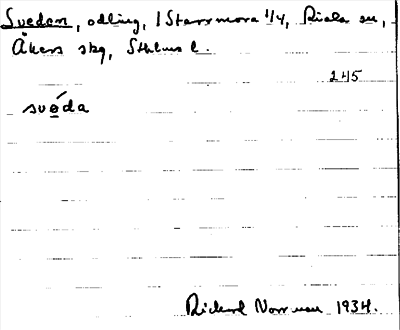 Svedan, odling, 1 Starrmora 1/4, Riala sn,
Åkers skg, Sthlms l.
245
svéda
Rickard Norrman 1934.